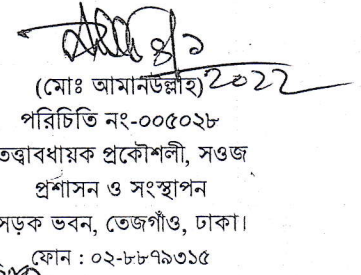 (মোঃ আমানউল্লাহ) 2022
পরিচিতি নং-০০৫০২৮
তত্ত্বাবধায়ক প্রকৌশলী, সওজ
প্রশাসন ও সংস্থাপন
সড়ক ভবন, তেজগাঁও, ঢাকা।
ফোন : ০২-৮৮৭৯৩১৫